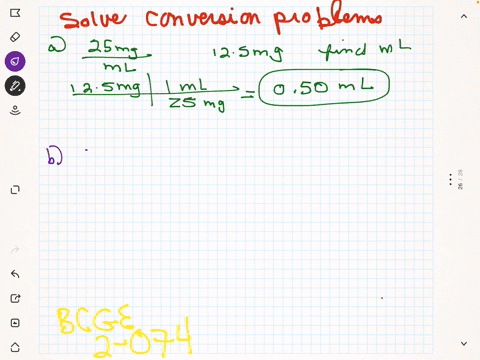 Solve conversion problems
a) 25mg / mL 12.5mg find mL
12.5mg | 1 mL / 25 mg = 0.50 mL
b)
BCGE
2-074
26 / 26